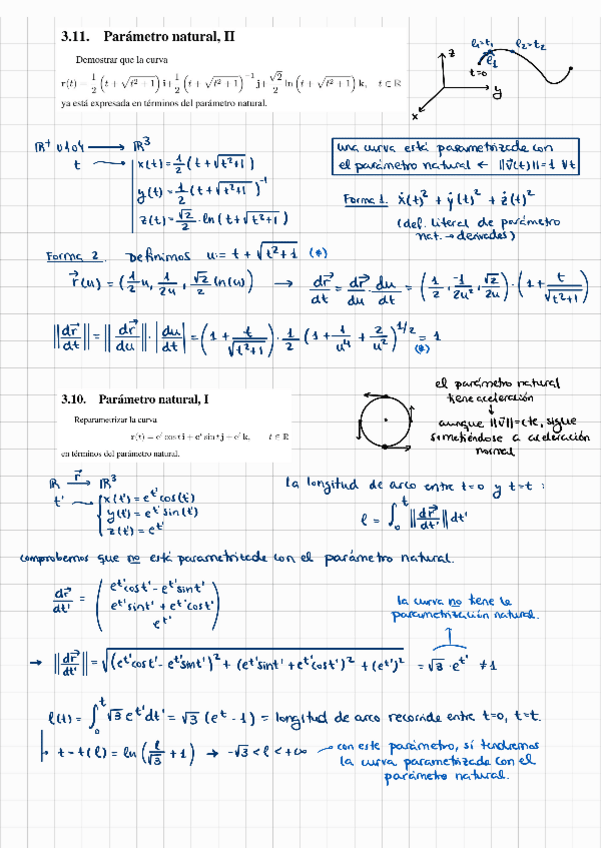 3.11. Parámetro natural, II
Demostrar que la curva
r(t) = 1/2 (t + √(t²+1)) i + 1/2 (t + √(t²+1))⁻¹ j + √2/2 ln (t + √(t²+1)) k, t ∈ ℝ
ya está expresada en términos del parámetro natural.
ℓ₁=t₁ ℓ₂=t₂
ê₁
t=0
z
y
x
ℝ⁺ ∪ {0} → ℝ³
t → x(t) = 1/2 (t + √(t²+1))
y(t) = 1/2 (t + √(t²+1))⁻¹
z(t) = √2/2 · ln (t + √(t²+1))
una curva está parametrizada con
el parámetro natural ← ||v⃗(t)||=1 ∀t
Forma 1. ẋ(t)² + ẏ(t)² + ż(t)²
(def. literal de parámetro
nat. → derivadas)
Forma 2. Definimos u = t + √(t²+1) (*)
r⃗(u) = (1/2 u, 1/2u, √2/2 ln(u)) → dr⃗/dt = dr⃗/du · du/dt = (1/2, -1/2u², √2/2u) · (1 + t/√(t²+1))
||dr⃗/dt|| = ||dr⃗/du|| · |du/dt| = (1 + t/√(t²+1)) · 1/2 (1 + 1/u⁴ + 2/u²)^1/2 = 1
(*)
3.10. Parámetro natural, I
Reparametrizar la curva
r(t) = eᵗ cos t i + eᵗ sin t j + eᵗ k, t ∈ ℝ
en términos del parámetro natural.
el parámetro natural
tiene aceleración
↓
aunque ||v⃗||=cte, sigue
sometiéndose a aceleración
normal
ℝ r⃗→ ℝ³
t' → x(t') = e^t' cos(t')
y(t') = e^t' sin(t')
z(t') = e^t'
la longitud de arco entre t=0 y t=t :
ℓ = ∫₀ᵗ ||dr⃗/dt'|| dt'
comprobemos que no está parametrizada con el parámetro natural.
dr⃗/dt' = (e^t' cost' - e^t' sint'
e^t' sint' + e^t' cost'
e^t')
la curva no tiene la
parametrización natural.
→ ||dr⃗/dt'|| = √((e^t' cost' - e^t' sint')² + (e^t' sint' + e^t' cost')² + (e^t')²) = √3 · e^t' ≠ 1
ℓ(t) = ∫₀ᵗ √3 e^t' dt' = √3 (eᵗ - 1) = longitud de arco recorrida entre t=0, t=t.
↳ t = t(ℓ) = ln (ℓ/√3 + 1) → -√3 < ℓ < +∞ con este parámetro, sí tendremos
la curva parametrizada con el
parámetro natural.